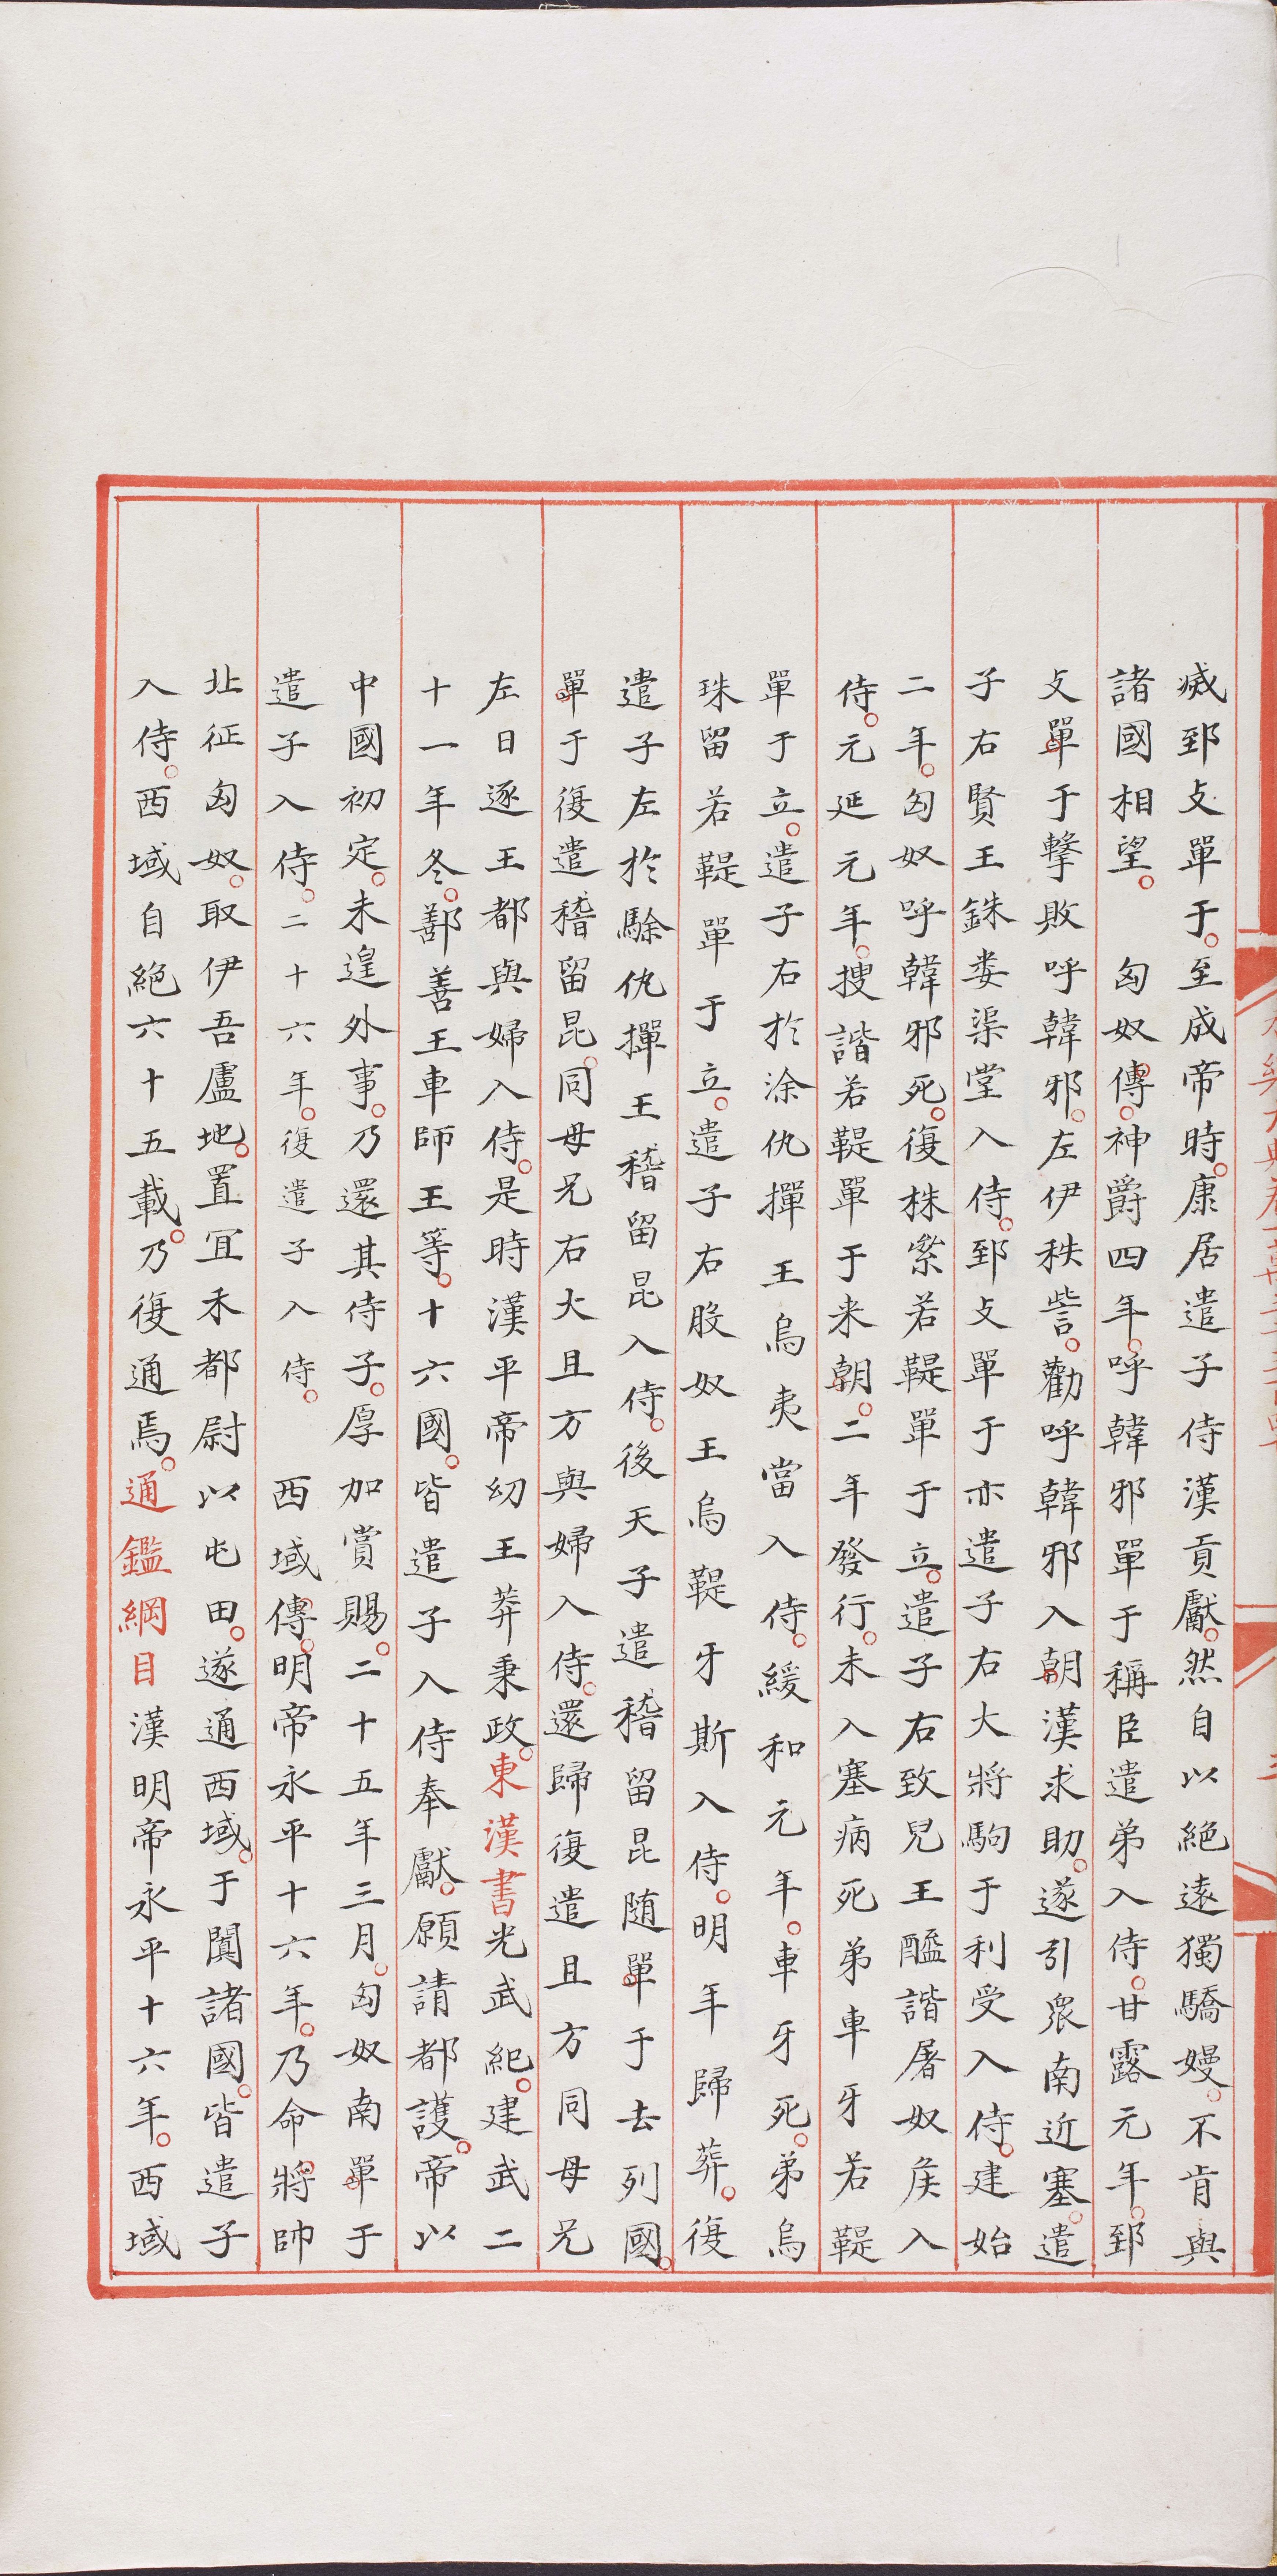 滅郅支單于至成帝時康居遣子侍漢貢獻然自以絕遠獨驕嫚不肯與
諸國相望 匈奴傳神爵四年呼韓邪單于稱臣遣弟入侍甘露元年郅
支單于擊敗呼韓邪左伊秩訾勸呼韓邪入朝漢求助遂引衆南近塞遣
子右賢王銖婁渠堂入侍郅支單于亦遣子右大將駒于利受入侍建始
二年匈奴呼韓邪死復株絫若鞮單于立遣子右致兒王醯諧屠奴侯入
侍元延元年搜諧若鞮單于来朝二年發行未入塞病死弟車牙若鞮
單于立遣子右於涂仇撣王烏夷當入侍緩和元年車牙死弟烏
珠留若鞮單于立遣子右股奴王烏鞮牙斯入侍明年歸葬復
遣子左於駼仇撣王稽留昆入侍後天子遣稽留昆随單于去列國
單于復遣稽留昆同母兄右大且方與婦入侍還歸復遣且方同母兄
左日逐王都與婦入侍是時漢平帝幼王莽秉政東漢書光武紀建武二
十一年冬鄯善王車師王等十六國皆遣子入侍奉獻願請都護帝以
中國初定未遑外事乃還其侍子厚加賞賜二十五年三月匈奴南單于
遣子入侍二十六年復遣子入侍 西域傳明帝永平十六年乃命將帥
北征匈奴取伊吾盧地置宜禾都尉以屯田遂通西域于闐諸國皆遣子
入侍西域自絕六十五載乃復通焉通鑑綱目漢明帝永平十六年西域